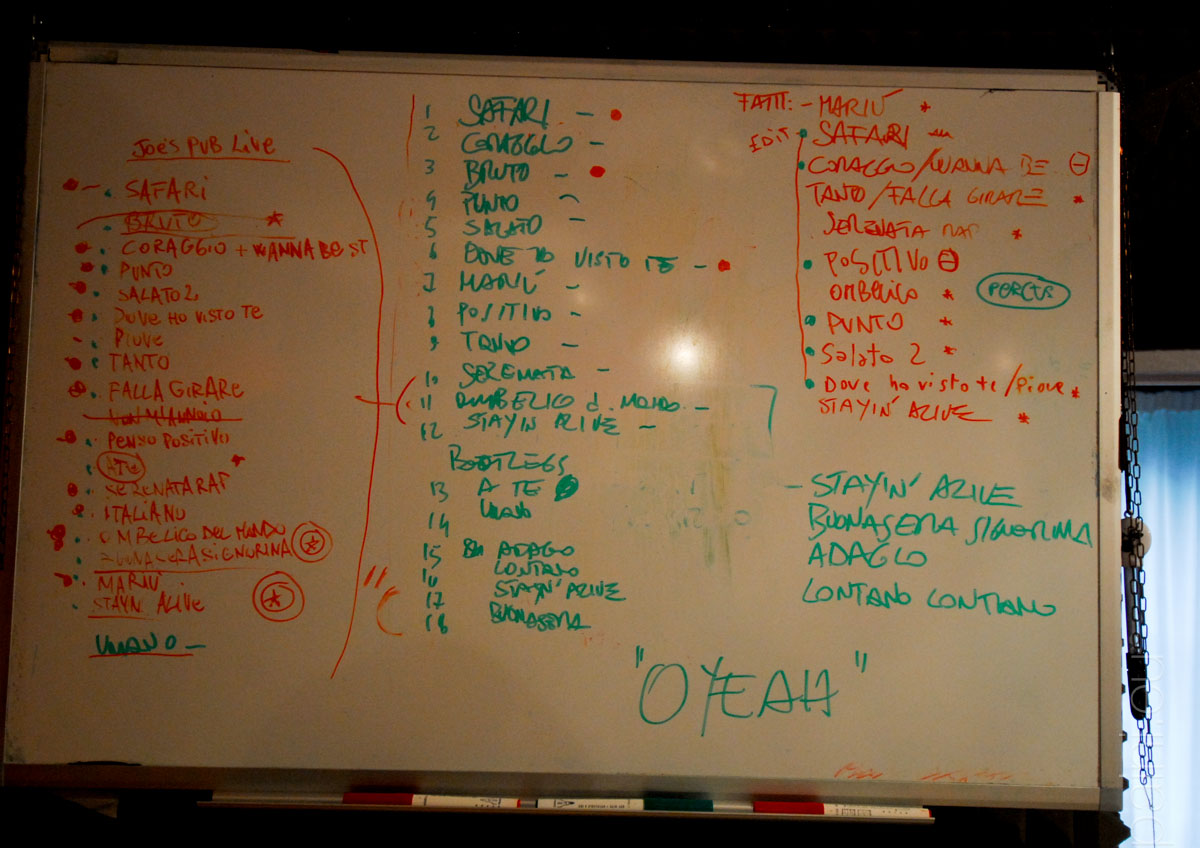 JOE'S PUB LIVE
SAFARI
BRUTO
CORAGGIO + WANNA BE ST
PUNTO
SALATO 2
DOVE HO VISTO TE
PIOVE
TANTO
FALLA GIRARE
PENSO POSITIVO
A TE
SERENATA RAP
ITALIANO
OMBELICO DEL MONDO
BUONASERA SIGNORINA
MARIÚ
STAYN' ALIVE
UMANO -
1 SAFARI -
2 CORAGGIO -
3 BRUTO -
4 PUNTO
5 SALATO
6 DOVE HO VISTO TE -
7 MARIÚ -
8 POSITIVO -
9 TANTO -
10 SERENATA -
11 OMBELICO d. MONDO -
12 STAYIN ALIVE -
BOOTLEGS
13 A TE
14 UMANO
15 ADAGIO
16 LONTANO
17 STAYN' ALIVE
18 BUONASERA
FATTI: - MARIÚ *
EDIT - SAFARI
CORAGGIO/WANNA BE
TANTO/FALLA GIRARE *
SERENATA RAP *
POSITIVO
OMBELICO *
PERCUS
PUNTO *
Salato 2 *
Dove ho visto te/Piove *
STAYIN' ALIVE *
- STAYIN' ALIVE
BUONASERA SIGNORINA
ADAGIO
LONTANO LONTANO
"O YEAH"